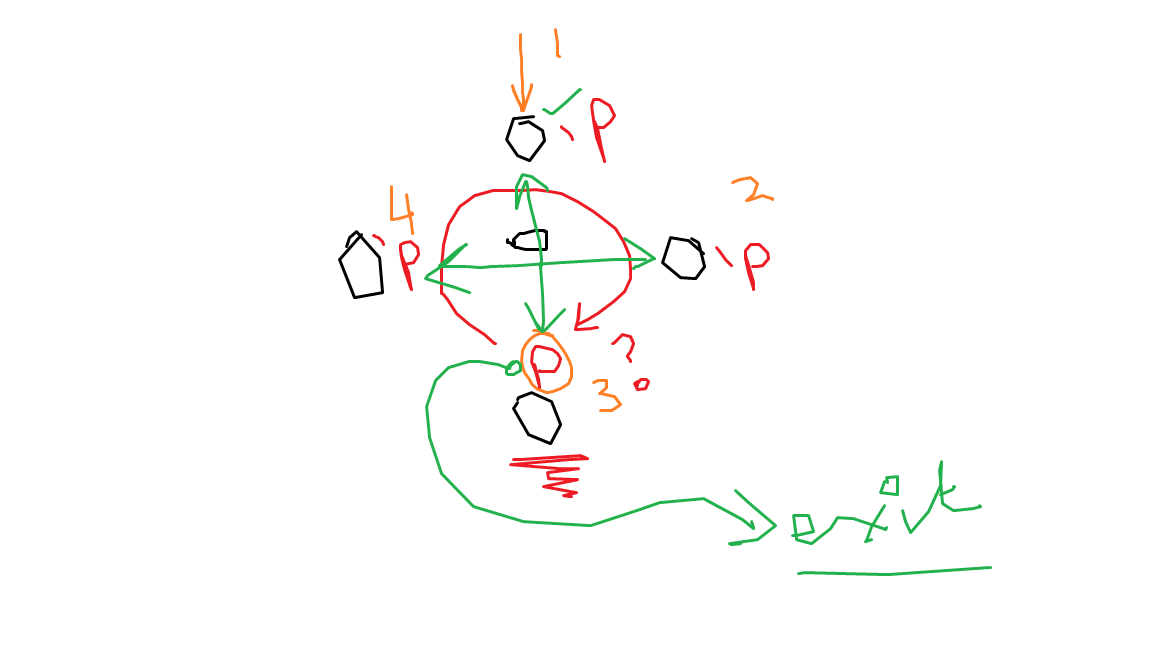 1
P
2
4
P
P
P
?
3
exit